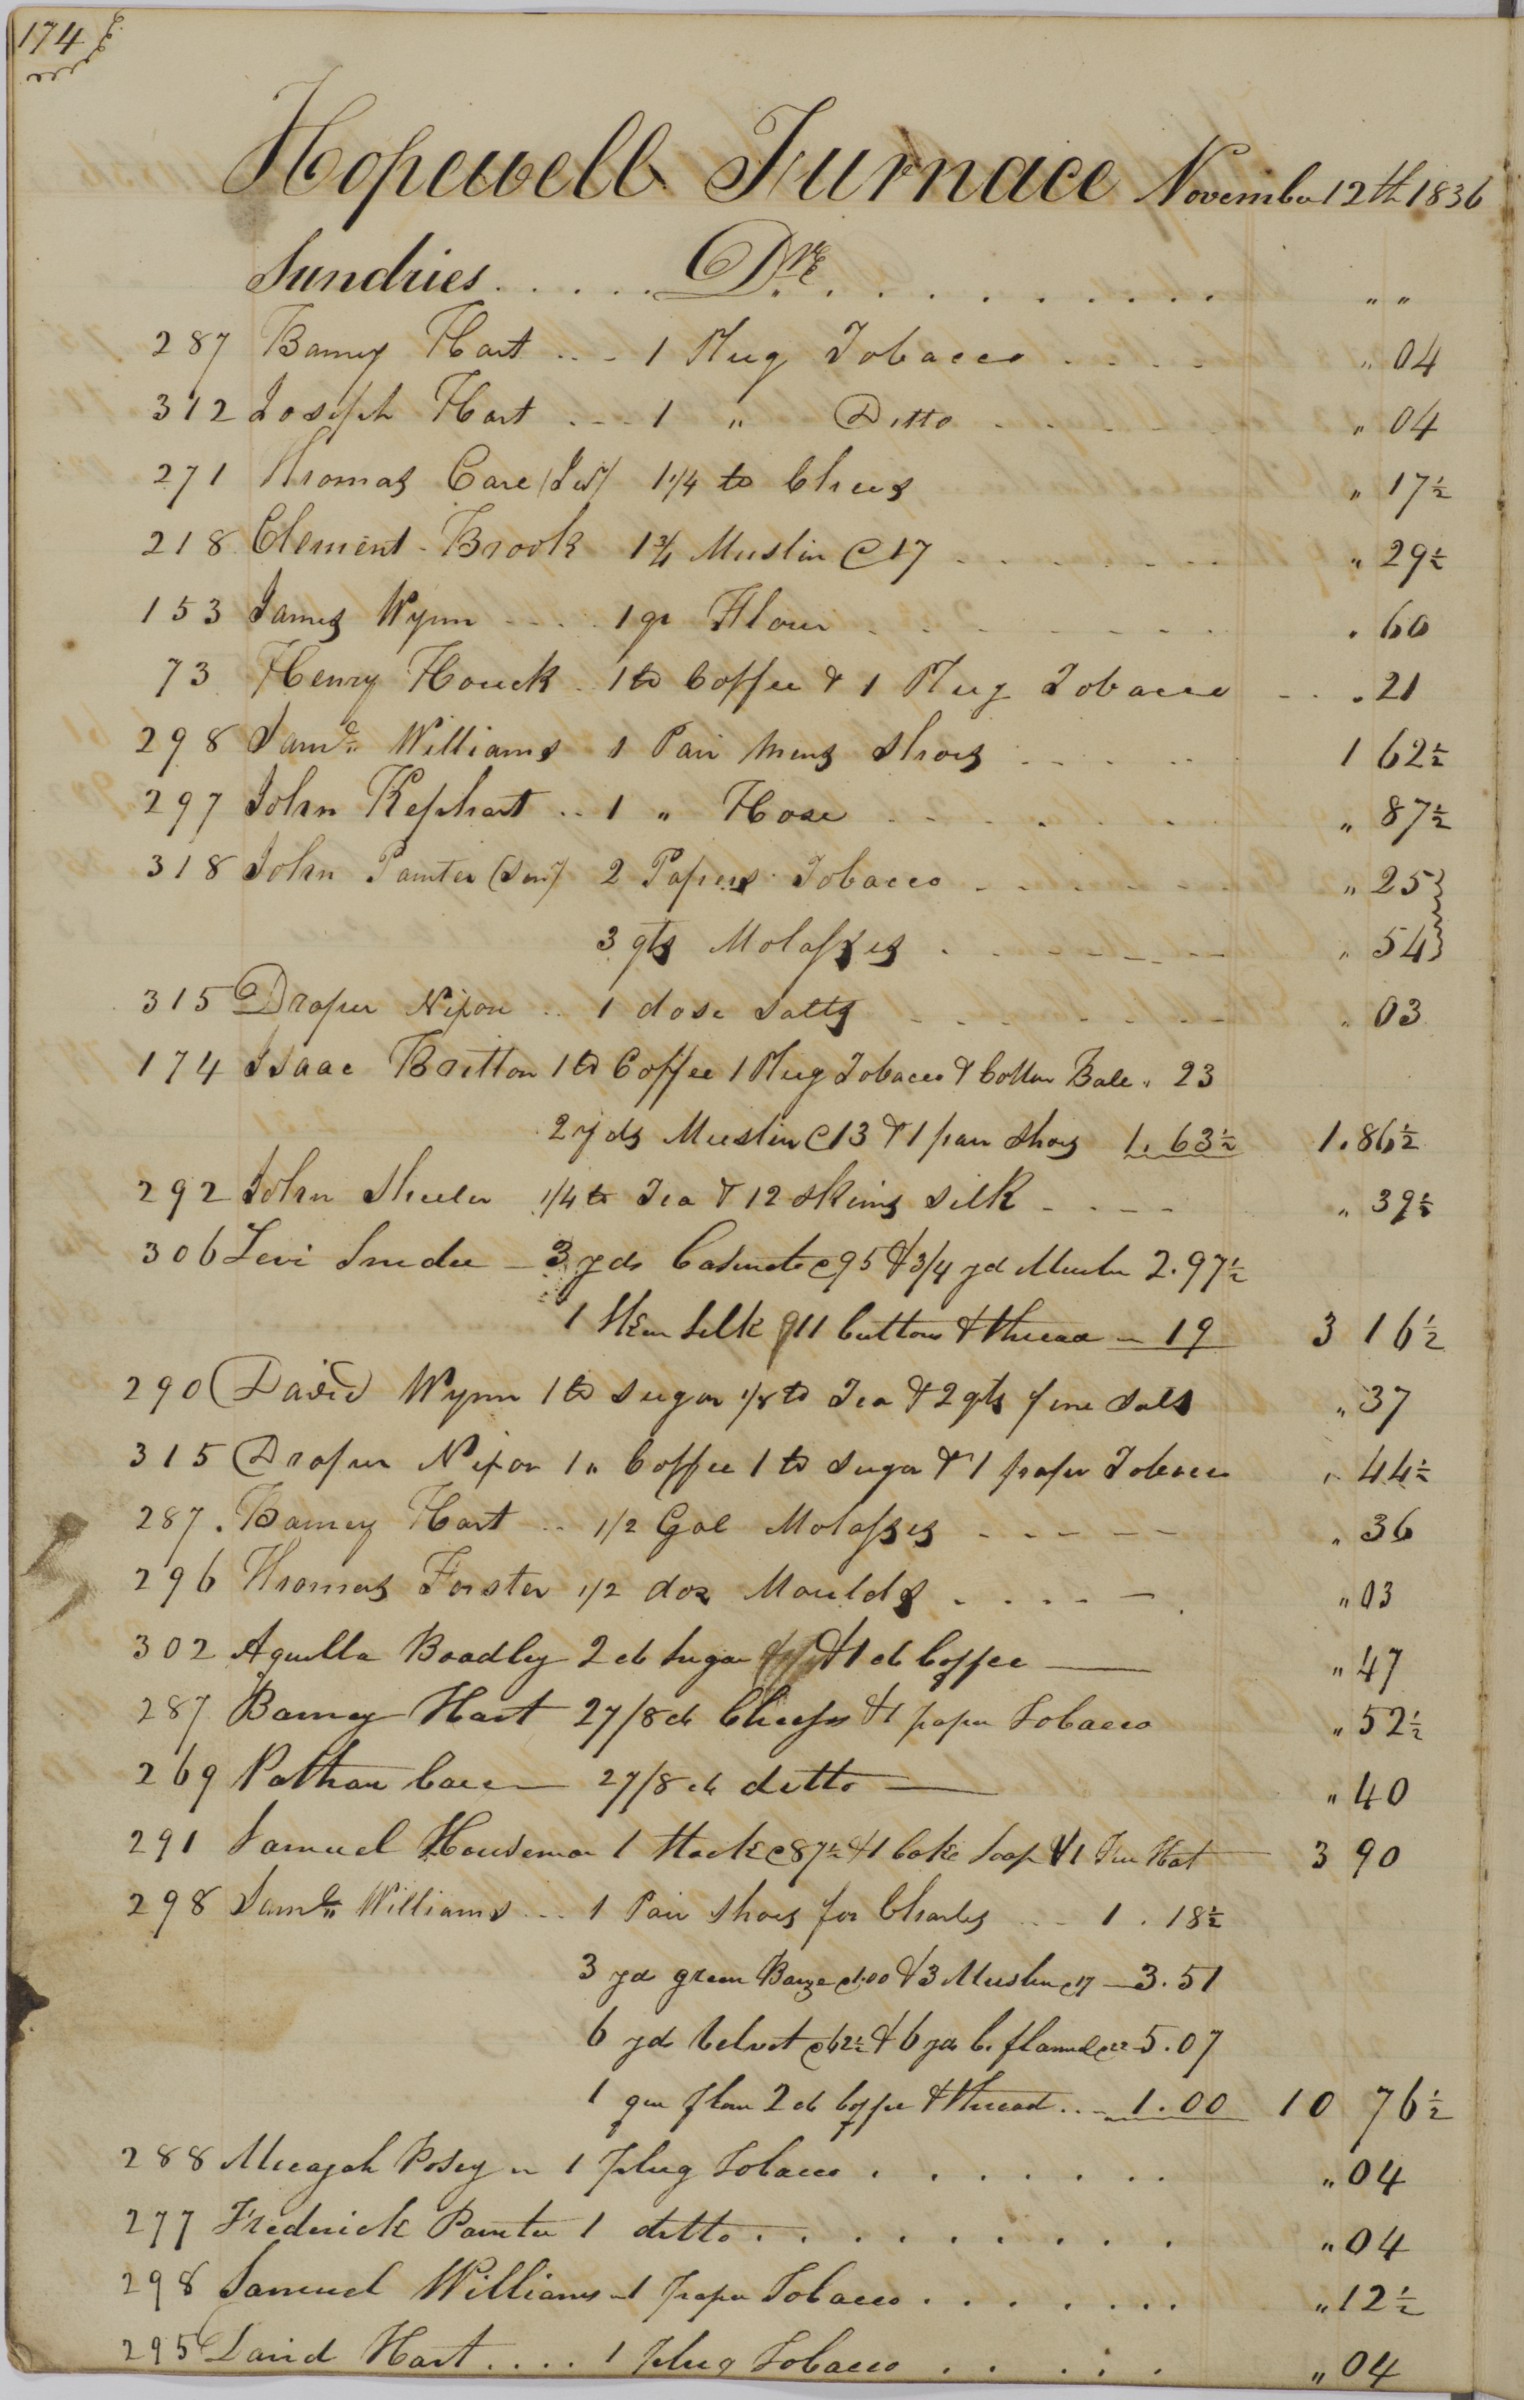 174
Hopewell Furnace November 12th 1836
Sundries . . . . . Drs . . . . . . . . . . " "
287 Barney Hart . . - 1 Plug Tobacco . . . . " 04
312 Joseph Hart . - - 1 " Ditto . . . . " 04
271 Thomas Care (Senr) 1 1/4 lb Chees " 17½
218 Clement Brook 1¾ Muslin @ 17 . . . . " 29½
153 James Wynn - - . . 1 qr Flour . . . . . 60
73 Henry Houck . . 1 lb Coffee & 1 Plug Tobacco - . . 21
298 Saml Williams 1 Pair Mens Shoes . . . . 1 62½
297 John Kephart . . 1 " Hose . . . . " 87½
318 John Painter (Senr) 2 Papers Tobacco . . . . " 25
3 qts Molasses . . . . " 54
315 Draper Nixon . . 1 dose Salts . . . . " 03
174 Isaac Britton 1 lb Coffee 1 Plug Tobacco & Cotton Bale . 23
2 yds Muslin @ 13 & 1 pair Shoes 1. 63½ 1. 86½
292 John Sheeler 1/4 lb Tea & 12 Skeins Silk - . - - " 39½
306 Levi Snider - 3 yds Casinete @ 95 & 3/4 yd Muslin 2. 97½
1 Sken Silk 11 buttons & thread - 19 3 16½
290 David Wynn 1 lb Sugar 1/8 lb Tea & 2 qts fine Salt " 37
315 Draper Nixon 1 " Coffee 1 lb Sugar & 1 paper Tobacco " 44½
287 . Barney Hart . . 1/2 Gal Molasses - - - - - " 36
296 Thomas Forster 1/2 doz Moulds . . . . - . " 03
302 Aquilla Boadley 2 lb Sugar & 1 lb Coffee " 47
287 Barney Hart 2 7/8 lb Cheese & 1 paper Tobacco " 52½
269 Nathan Care 2 7/8 lb ditto " 40
291 Samuel Houseman 1 Stock @ 87½ & 1 Cake Soap & 1 Fur Hat 3 90
298 Saml Williams . . . 1 Pair Shoes for Charles - . . 1 . 18½
3 yd green Baize @ 1.00 & 3 Muslin @ 17 - 3. 51
6 yd Velvet @ 62½ & 6 yds C. flannel @ 22 - 5. 07
1 qr flour 2 lb Coffee & thread . . - 1. 00 10 76½
288 Micajah Posey - 1 plug Tobacco . . . . . . . " 04
277 Frederick Painter 1 ditto . . . . . . . . " 04
298 Samuel Williams - 1 paper Tobacco . . . . . . . " 12½
295 David Hart . . . . 1 plug Tobacco . . . . . " 04